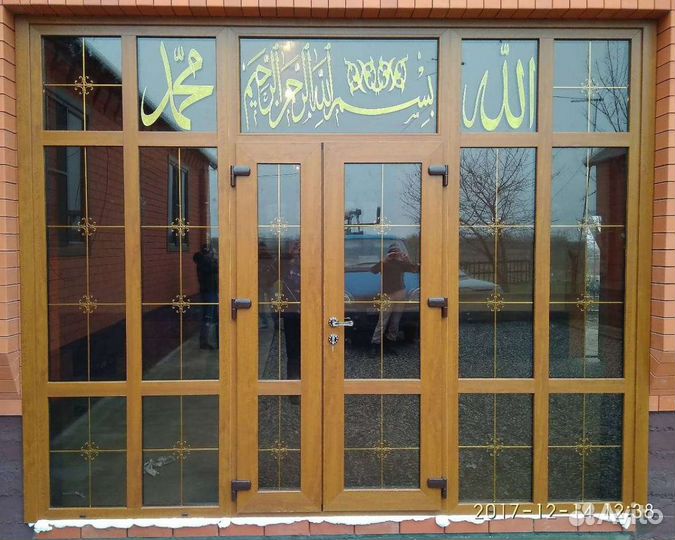 الله
بسم الله الرحمن الرحيم
محمد
2017-12-14 12:38
Avito